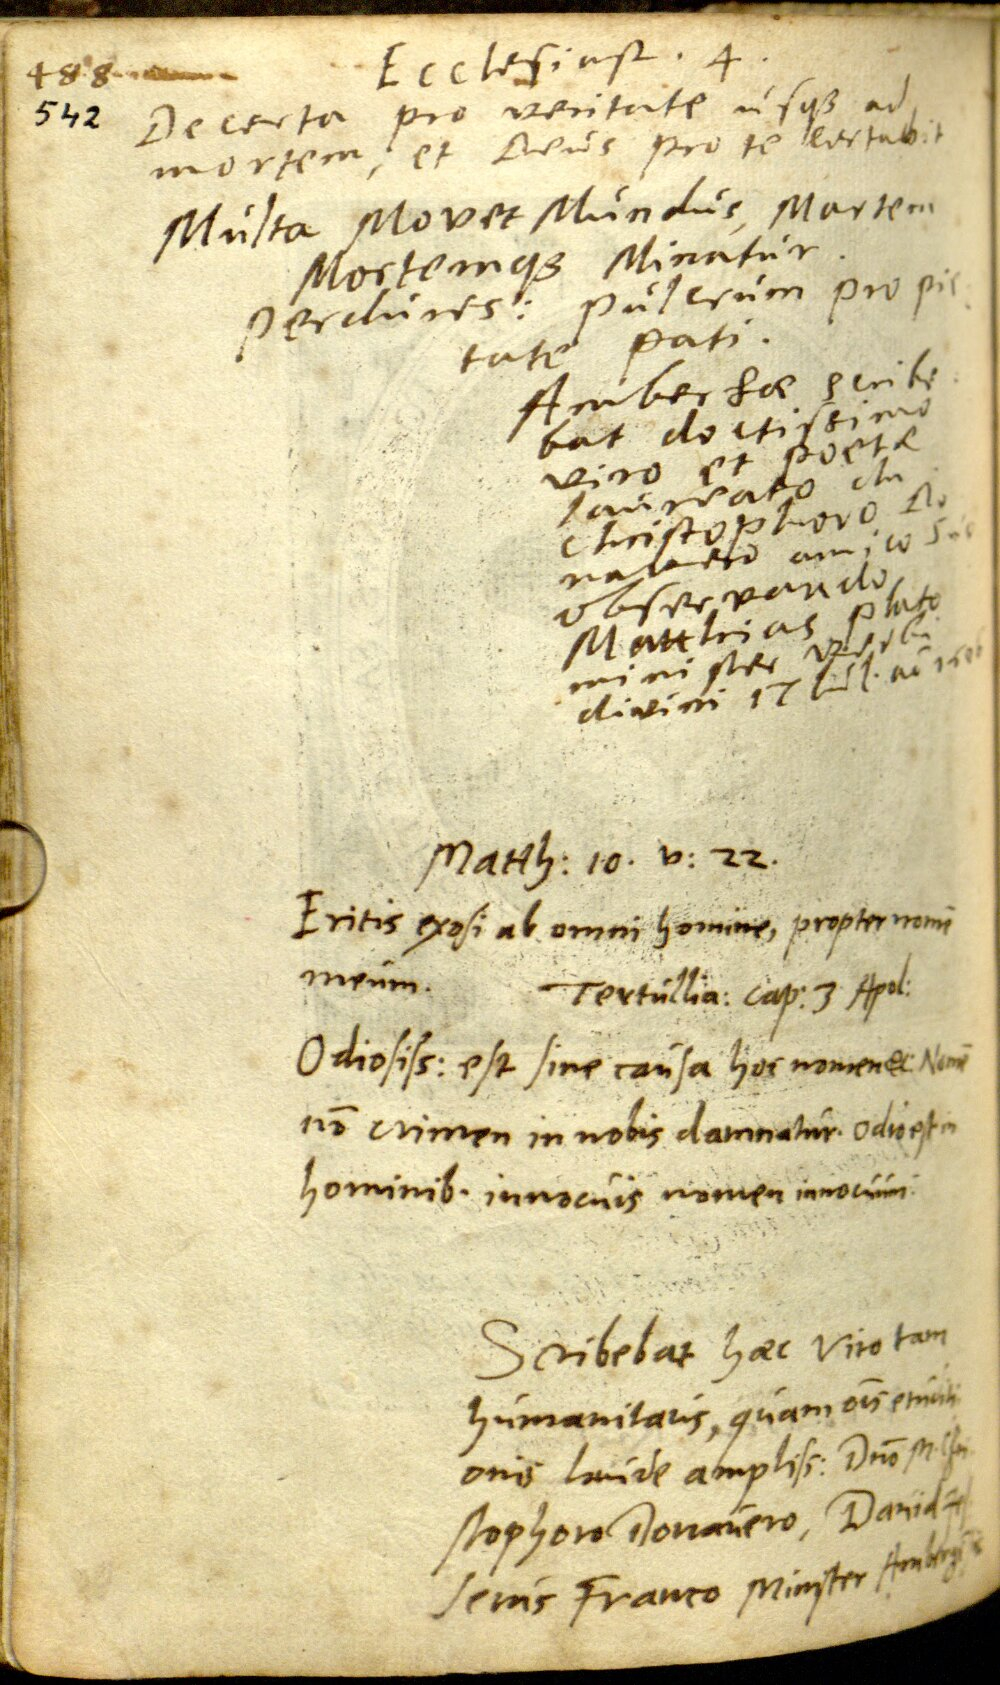 488
542
Ecclesiast. 4.
Decerta pro veritate usqȝ ad
mortem, et Deus pro te certabit
Multa Movet Mundus, Martem
Mortemqȝ Minatur.
Perdures: pulcrum pro pie
tate pati.
Ambergæ scribe
bat doctissimo
viro et poetæ
laureato
Christophoro Do
navero amico suo
observando
Matthias Plato
minister verbi
divini 17 Iul.
Matth: 10. v: 22.
Eritis exosi ab omni homine, propter nomē
meum. Tertullia: cap: 3 Apol:
Odiosiss: est sine causa hoc nomen &c: Nomē
nō crimen in nobis damnatur. Odio est in
hominib. innocuis nomen innocuum.
Scribebat hæc viro tam
humanitatis, quam eruditi
onis laude ampliss: Dnō M. Chri
stophoro Donavero, David
Franco Minister